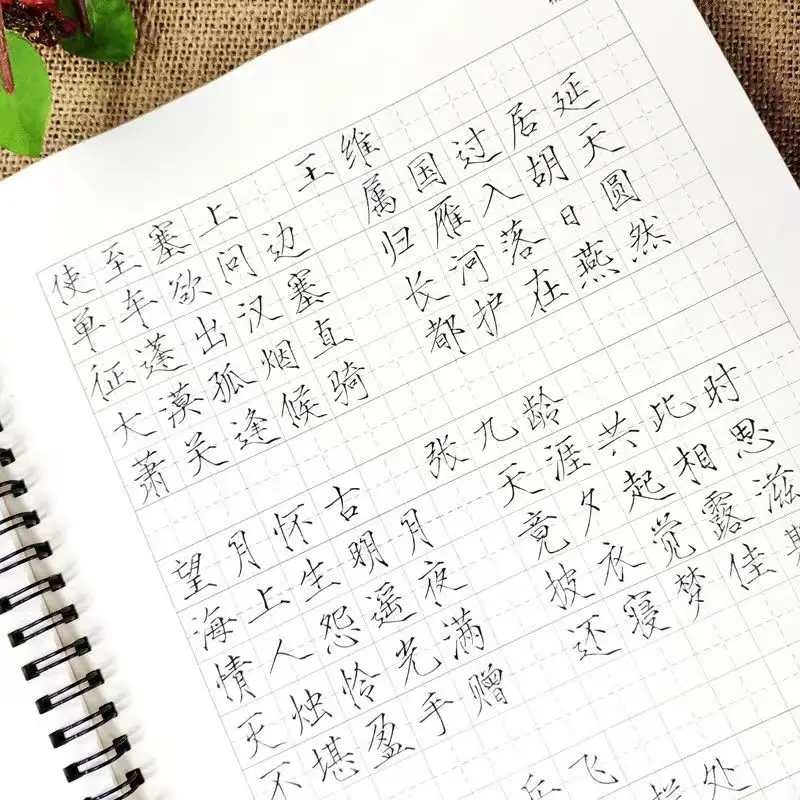 使至塞上 王维
单车欲问边 属国过居延
征蓬出汉塞 归雁入胡天
大漠孤烟直 长河落日圆
萧关逢候骑 都护在燕然
望月怀古 张九龄
海上生明月 天涯共此时
情人怨遥夜 竟夕起相思
灭烛怜光满 披衣觉露滋
不堪盈手赠 还寝梦佳期
岳飞
栏处